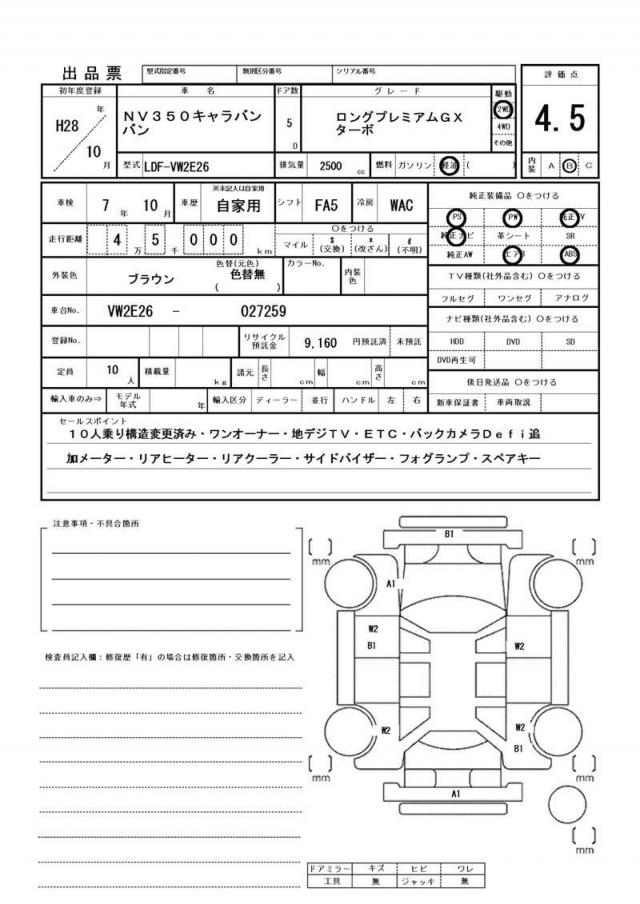 出品票 型式指定番号 類別区分番号 シリアル番号 評価点
初年度登録 車名 ドア数 グレード 駆動
H28 年 10 月
NV350キャラバン
バン
5 D
ロングプレミアムGX
ターボ
2WD
4WD
その他
4.5
型式 LDF-VW2E26 排気量 2500 cc 燃料 ガソリン 軽油 ( ) 内装 A B C
車検 7 年 10 月 車歴 ※未記入は自家用 自家用 シフト FA5 冷房 WAC
純正装備品 ○をつける
PS PW 純正TV
純正ナビ 革シート SR
純正AW エアB ABS
走行距離 4 万 5 千 000 km
○をつける
マイル $(交換) *(改ざん) #(不明)
外装色 ブラウン 色替(元色) 色替無 ( ) カラーNo. 内装色
TV種類(社外品含む) ○をつける
フルセグ ワンセグ アナログ
車台No. VW2E26 - 027259
ナビ種類(社外品含む) ○をつける
登録No. リサイクル預託金 9,160 円預託済 未預託
HDD DVD SD
DVD再生可
定員 10 人 積載量 kg 諸元 長さ cm 幅 cm 高さ cm
後日発送品 ○をつける
輸入車のみ⇒ モデル年式 年 輸入区分 ディーラー 並行 ハンドル 左 右
新車保証書 車両取説
セールスポイント
10人乗り構造変更済み・ワンオーナー・地デジTV・ETC・バックカメラDefi追
加メーター・リアヒーター・リアクーラー・サイドバイザー・フォグランプ・スペアキー
注意事項・不具合箇所
検査員記入欄：修復歴「有」の場合は修復箇所・交換箇所を記入
B1
[ ] mm
[ ] mm
A1
W2
B1
W2
W2
W2
B1
[ ] mm
[ ] mm
A1
[ ] mm
ドアミラー キズ ヒビ ワレ
工具 無 ジャッキ 無